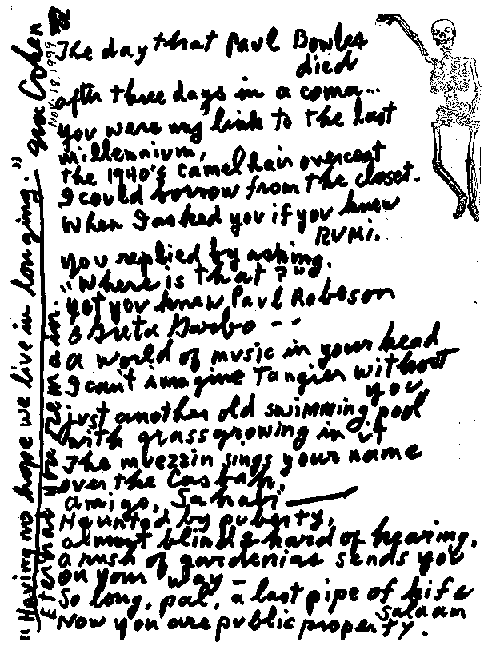 The day that Paul Bowles
died
after three days in a coma...
you were my link to the last
millennium,
the 1940's camel hair overcoat
I could borrow from the closet.
When I asked you if you knew
RUMi.
you replied by asking.
"Where is that?"
yet you knew Paul Robeson
& Greta Garbo --
a world of music in your head
I can't imagine Tangier without
you
just another old swimming pool
with grass growing in it
The muezzin sings your name
over the Casbah,
amigo, Sahabi —
Haunted by puberty,
almost blind & hard of hearing,
a rush of gardenias sends you
on your way —
So long, pal, a last pipe of kife
Salaam
Now you are public property.
"Having no hope we live in longing."
Eternal you remain.
Ira Cohen
Nov. 18, 1999